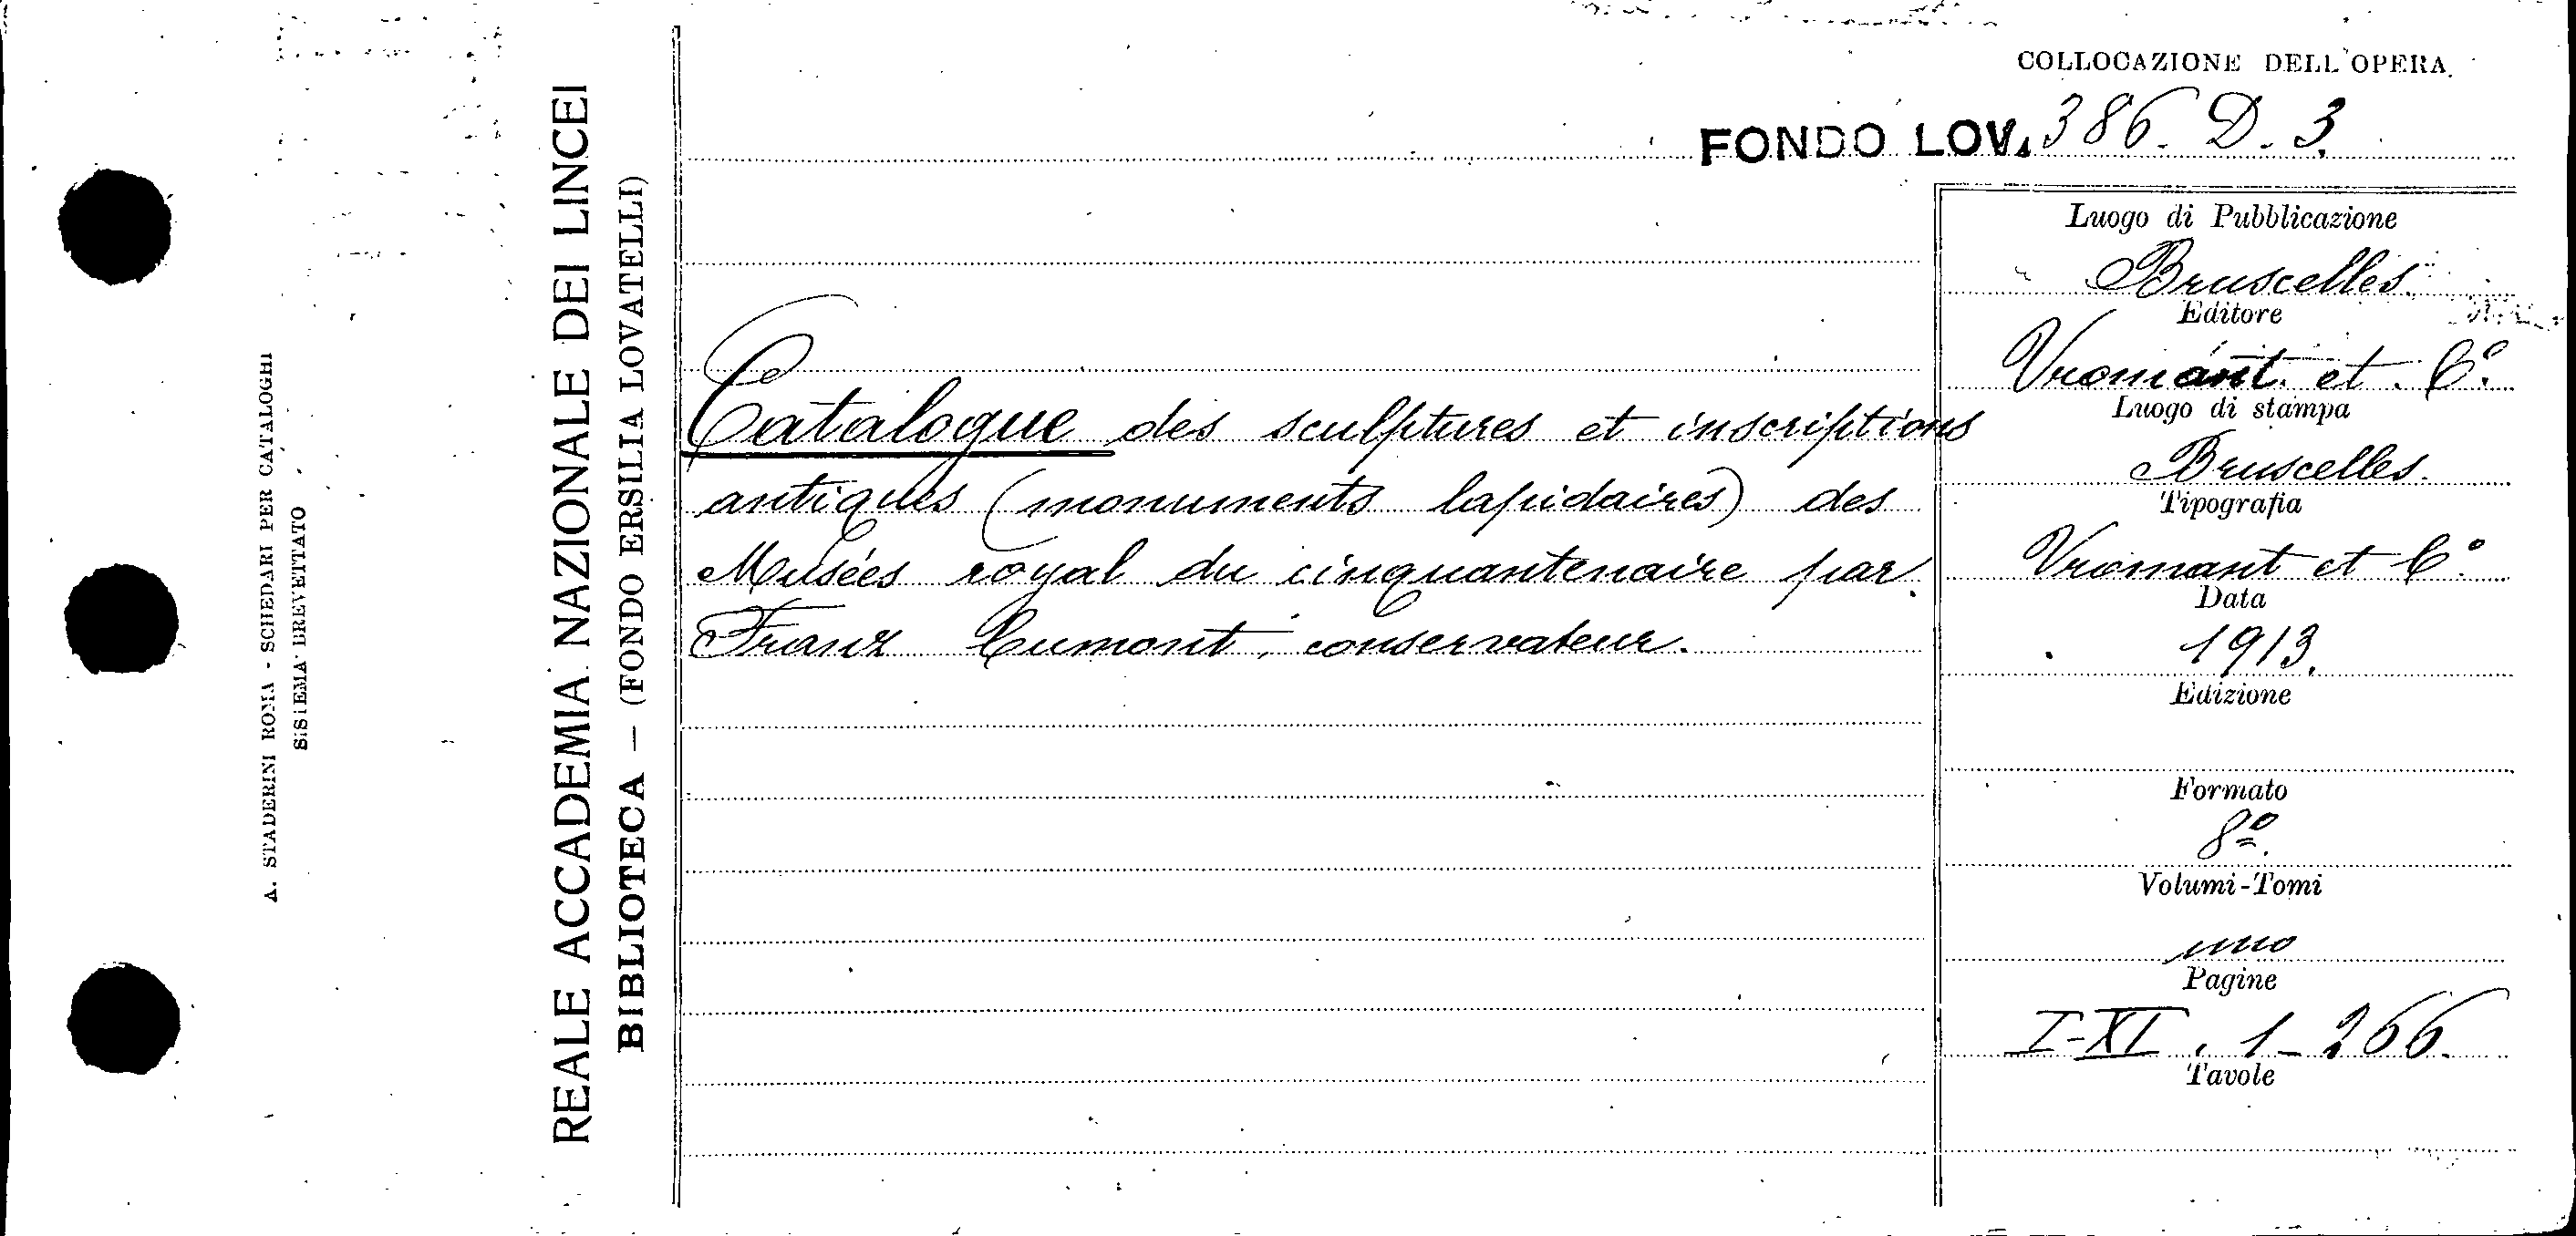 COLLOCAZIONE DELL'OPERA
FONDO LOV. 386. D. 3.
REALE ACCADEMIA NAZIONALE DEI LINCEI
BIBLIOTECA — (FONDO ERSILIA LOVATELLI)
A. STADERINI ROMA - SCHEDARI PER CATALOGHI
SISTEMA BREVETTATO
Catalogue des sculptures et inscriptions
antiques (monuments lapidaires) des
Musées royal du cinquantenaire par
Franz Cumont, conservateur.
Luogo di Pubblicazione
Bruscelles
Editore
Vromant et C.º
Luogo di stampa
Bruscelles.
Tipografia
Vromant et C.º
Data
1913.
Edizione
Formato
8º.
Volumi-Tomi
uno
Pagine
I-XI, 1-266.
Tavole